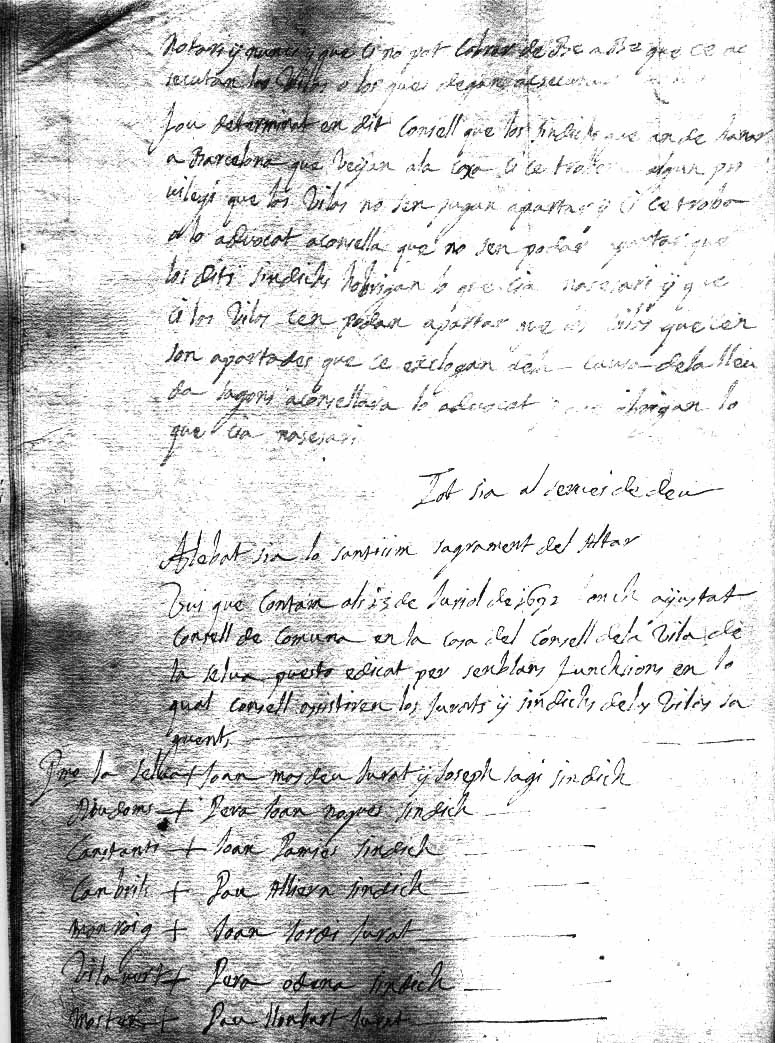 notaris y nuncis y que ci no pot cobrar de Bc a Bc que ce ae
secutan las Vilas o los ques degan aesecutar
Fou determinat en dit Consell que los sindichs que an de hanar
a Barcelona que vejian a la casa ci ce troba algun pri
vilegi que los Vilas no sen pugan apartar y ci ce troba
o lo advocat aconsella que no sen podan apartar que
los dits sindichs hobrigan lo que cia nasesari y que
ci los Vilas cen podan apartar que les Vilas que cen
son apartades que ce esclogan dela causa dela lleu
da sagons aconsellara lo advocat obrigan lo
que cia nasesari
Tot sia al servei de deu
Alebat sia lo santicim sagrament del Altar
Vui que Contam als 23 de Juriol de 1692 fonch ajustat
Consell de Comuna en la casa del Consell dela Vila de
la selva puesto edicat per senblans funchsions en lo
qual Consell asistiren los Jurats y sindichs dels Vilas sa
guents
Pmo la selva + Joan masdeu Jurat y Joseph sagi sindich
Riudoms + Pera Joan nogues sindich
Constanti + Joan Pamies sindich
Canbrils + Pau Alliera sindich
Monroig + Joan Jordi Jurat
Vilavert + Pera odena sindich
Mostera + Pau Monbart Jurat